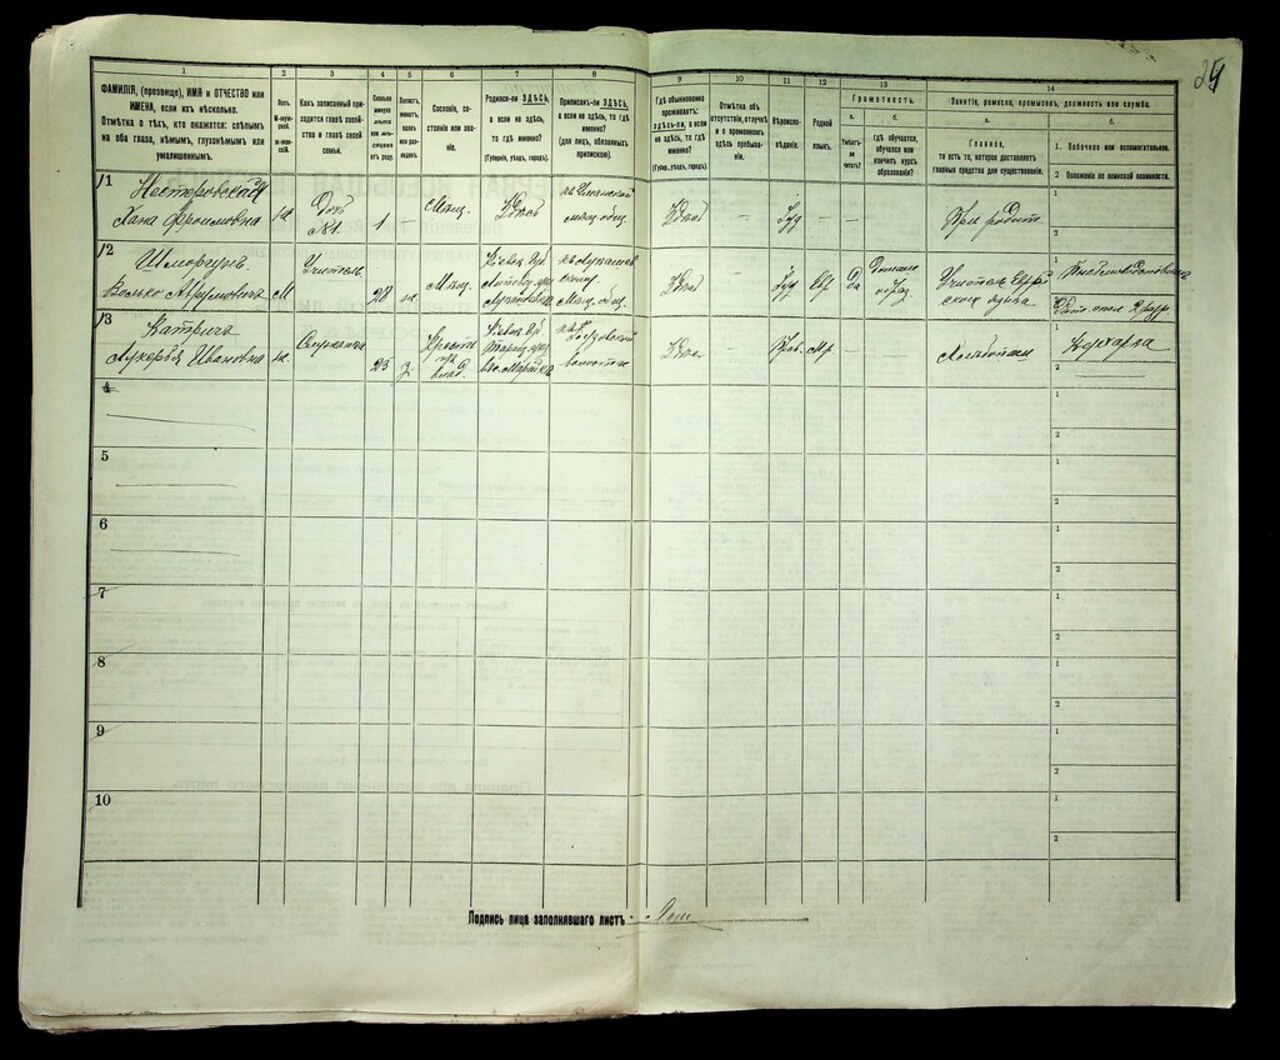 84
1
2
3
4
5
6
7
8
9
10
11
12
13
14
ФАМИЛІЯ, (прозвище), ИМЯ и ОТЧЕСТВО или
ИМЕНА, если ихъ нѣсколько.
Отмѣтка о тѣхъ, кто окажется: слѣпымъ
на оба глаза, нѣмымъ, глухонѣмымъ или
умалишеннымъ.
Полъ.
М-муж-
ской.
Ж-жен-
скій.
Какъ записанный при-
ходится главѣ хозяй-
ства и главѣ своей
семьи.
Сколько
минуло
лѣтъ
или мѣ-
сяцевъ
отъ роду.
Холостъ,
женатъ,
вдовъ
или раз-
веденъ.
Сословіе, со-
стояніе или зва-
ніе.
Родился-ли ЗДѢСЬ,
а если не здѣсь,
то гдѣ именно?
(Губернія, уѣздъ, городъ).
Приписанъ-ли ЗДѢСЬ,
а если не здѣсь, то гдѣ
именно?
(для лицъ, обязанныхъ
припискою).
Гдѣ обыкновенно
проживаетъ:
здѣсь-ли, а если
не здѣсь, то гдѣ
именно?
(Губерн., уѣздъ, городъ).
Отмѣтка объ
отсутствіи, отлучкѣ
и о временномъ
здѣсь пребыва-
ніи.
Вѣроиспо-
вѣданіе.
Родной
языкъ.
Грамотность.
а.
Умѣетъ-
ли
читать?
б.
гдѣ обучается,
обучался или
кончилъ курсъ
образованія?
Занятіе, ремесло, промыселъ, должность или служба.
а.
Главное,
то есть то, которое доставляетъ
главныя средства для существованія.
б.
1. Побочное или вспомогательное.
2 Положеніе по воинской повинности.
1
Нестеровская
Хана Фроимовна
ж
Дочь
№1.
1
—
Мѣщ.
Здѣсь
въ Уманской
мѣщ. общ.
Здѣсь
—
Іуд
—
—
При родит.
1
2
2
Шморгунъ.
Волько Абрумовичъ
М
Учитель
28
ж.
Мѣщ.
Кіевск. Губ.
Мѣщ. общ.
Здѣсь
—
Іуд
Евр
да
Домашн
образ.
Учитель Еврей
скаго языка
1
2 разр.
3
Катричъ
Лукерья Ивановна
ж.
25
Кресть
Кіевск. Губ.
Таращ. уѣз
волости
Здѣсь
—
Прав.
Мр.
—
1
Кухарка
2
4
1
2
5
1
2
6
1
2
7
1
2
8
1
2
9
1
2
10
1
2
Подпись лица заполнявшаго листъ